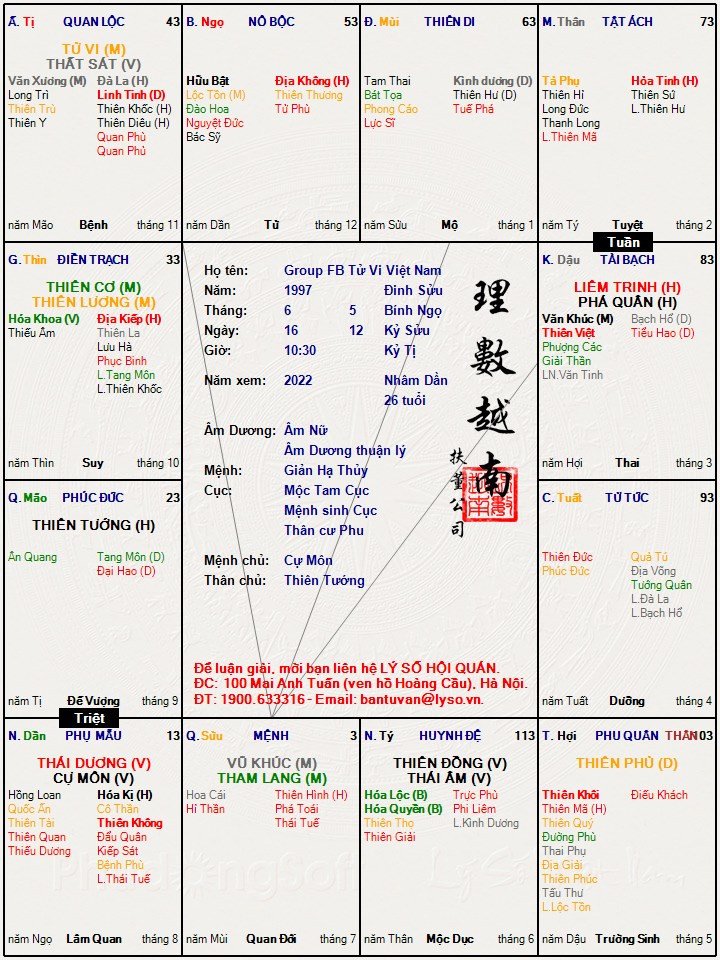 Ấ. Tị QUAN LỘC 43
TỬ VI (M)
THẤT SÁT (V)
Văn Xương (M) Đà La (H)
Long Trì Linh Tinh (D)
Thiên Trù Thiên Khốc (H)
Thiên Y Thiên Diêu (H)
Quan Phù
Quan Phủ
năm Mão Bệnh tháng 11
B. Ngọ NÔ BỘC 53
Hữu Bật Địa Không (H)
Lộc Tồn (M) Thiên Thương
Đào Hoa Tử Phù
Nguyệt Đức
Bác Sỹ
năm Dần Tử tháng 12
Đ. Mùi THIÊN DI 63
Tam Thai Kình dương (D)
Bát Tọa Thiên Hư (D)
Phong Cáo Tuế Phá
Lực Sĩ
năm Sửu Mộ tháng 1
M. Thân TẬT ÁCH 73
Tả Phụ Hỏa Tinh (H)
Thiên Hỉ Thiên Sứ
Long Đức L.Thiên Hư
Thanh Long
L.Thiên Mã
năm Tý Tuyệt tháng 2
Tuần
G. Thìn ĐIỀN TRẠCH 33
THIÊN CƠ (M)
THIÊN LƯƠNG (M)
Hóa Khoa (V) Địa Kiếp (H)
Thiếu Âm Thiên La
Lưu Hà
Phục Binh
L.Tang Môn
L.Thiên Khốc
năm Thìn Suy tháng 10
Họ tên: Group FB Tử Vi Việt Nam
Năm: 1997 Đinh Sửu
Tháng: 6 5 Bính Ngọ
Ngày: 16 12 Kỷ Sửu
Giờ: 10:30 Kỷ Tị
Năm xem: 2022 Nhâm Dần
26 tuổi
Âm Dương: Âm Nữ
Âm Dương thuận lý
Mệnh: Giản Hạ Thủy
Cục: Mộc Tam Cục
Mệnh sinh Cục
Thân cư Phu
Mệnh chủ: Cự Môn
Thân chủ: Thiên Tướng
理數越南
扶董公司
Để luận giải, mời bạn liên hệ LÝ SỐ HỘI QUÁN.
ĐC: 100 Mai Anh Tuấn (ven hồ Hoàng Cầu), Hà Nội.
ĐT: 1900.633316 - Email: bantuvan@lyso.vn.
K. Dậu TÀI BẠCH 83
LIÊM TRINH (H)
PHÁ QUÂN (H)
Văn Khúc (M) Bạch Hổ (D)
Thiên Việt Tiểu Hao (D)
Phượng Các
Giải Thần
LN.Văn Tinh
năm Hợi Thai tháng 3
Q. Mão PHÚC ĐỨC 23
THIÊN TƯỚNG (H)
Ân Quang Tang Môn (D)
Đại Hao (D)
năm Tị Đế Vượng tháng 9
C. Tuất TỬ TỨC 93
Thiên Đức Quả Tú
Phúc Đức Địa Võng
Tướng Quân
L.Đà La
L.Bạch Hổ
năm Tuất Dưỡng tháng 4
Triệt
N. Dần PHỤ MẪU 13
THÁI DƯƠNG (V)
CỰ MÔN (V)
Hồng Loan Hóa Kị (H)
Quốc Ấn Cô Thần
Thiên Tài Thiên Không
Thiên Quan Đẩu Quân
Thiếu Dương Kiếp Sát
Bệnh Phù
L.Thái Tuế
năm Ngọ Lâm Quan tháng 8
Q. Sửu MỆNH 3
VŨ KHÚC (M)
THAM LANG (M)
Hoa Cái Thiên Hình (H)
Hỉ Thần Phá Toái
Thái Tuế
năm Mùi Quan Đới tháng 7
N. Tý HUYNH ĐỆ 113
THIÊN ĐỒNG (V)
THÁI ÂM (V)
Hóa Lộc (B) Trực Phù
Hóa Quyền (B) Phi Liêm
Thiên Thọ L.Kình Dương
Thiên Giải
năm Thân Mộc Dục tháng 6
T. Hợi PHU QUÂN THÂN 103
THIÊN PHỦ (D)
Thiên Khôi Điếu Khách
Thiên Mã (H)
Thiên Quý
Đường Phù
Thai Phụ
Địa Giải
Thiên Phúc
Tấu Thư
L.Lộc Tồn
năm Dậu Trường Sinh tháng 5